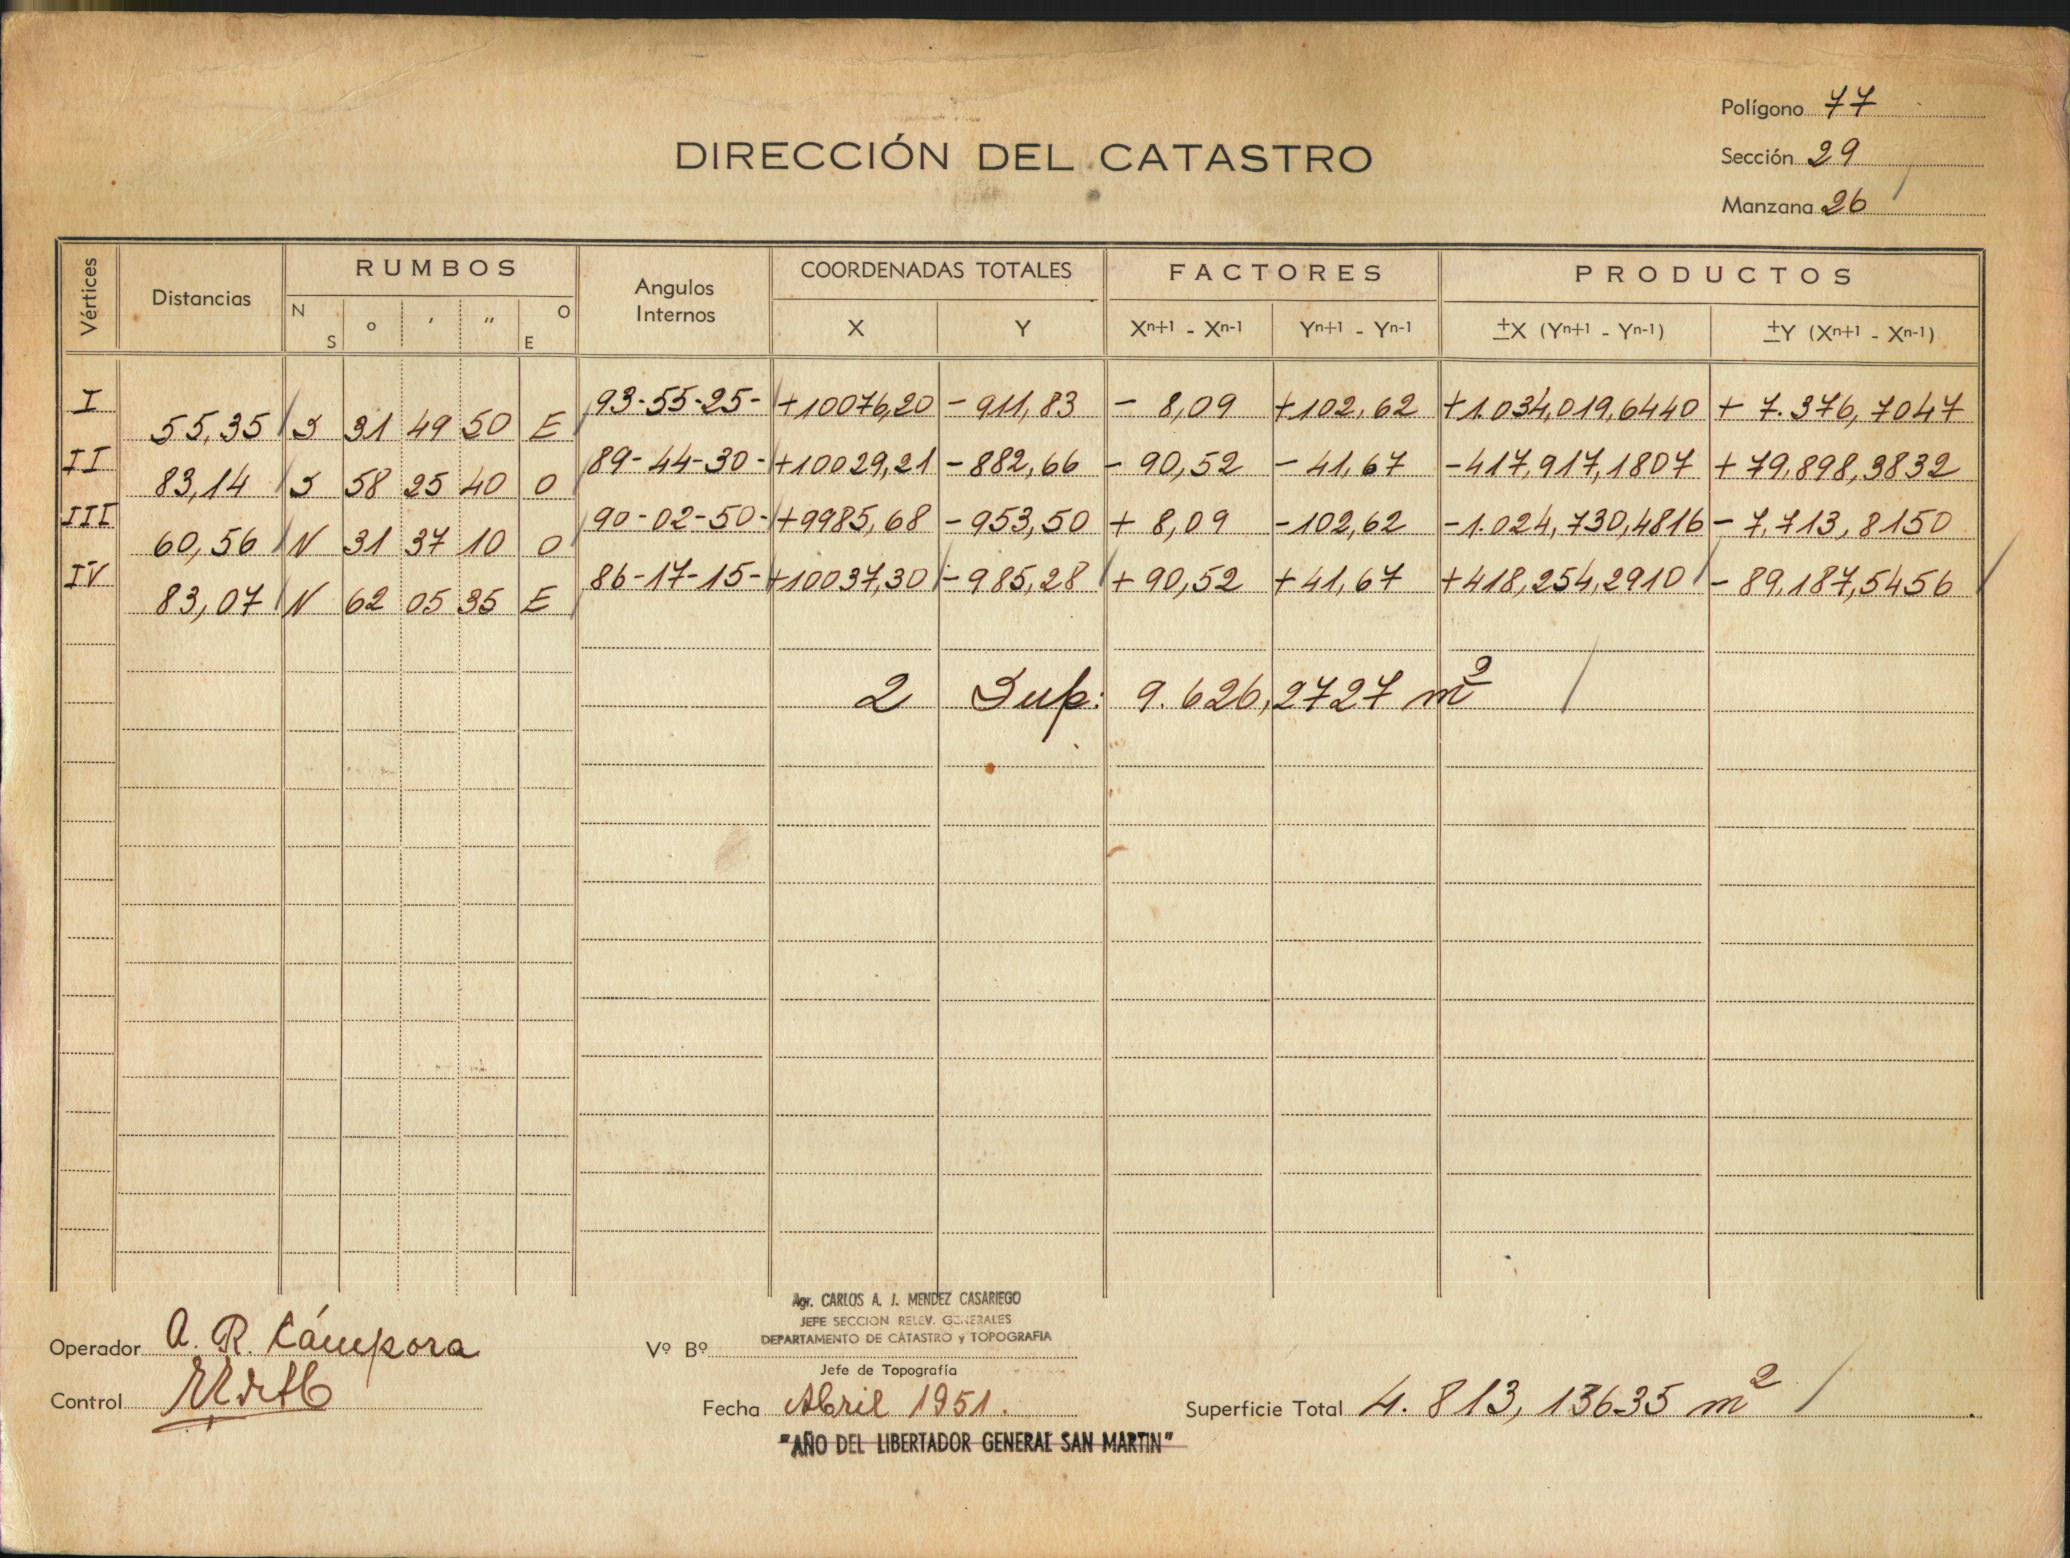 Polígono 77
DIRECCIÓN DEL CATASTRO
Sección 29
Manzana 26
Vértices Distancias RUMBOS Angulos Internos COORDENADAS TOTALES FACTORES PRODUCTOS
N S o ' " O E X Y Xn+1 - Xn-1 Yn+1 - Yn-1 ±X (Yn+1 - Yn-1) ±Y (Xn+1 - Xn-1)
I 93-55-25- +10076,20 -911,83 - 8,09 +102,62 +1.034,019,6440 + 7.376,7047
55,35 S 31 49 50 E
II 89-44-30- +10029,21 -882,66 - 90,52 - 41,67 -417,917,1807 + 79,898,3832
83,14 S 58 25 40 O
III 90-02-50- +9985,68 -953,50 + 8,09 -102,62 -1.024,730,4816 - 7,713,8150
60,56 N 31 37 10 O
IV 86-17-15- +10037,30 -985,28 + 90,52 +41,67 +418,254,2910 - 89,187,5456
83,07 N 62 05 35 E
2 Sup: 9.626,2727 m²
Agr. CARLOS A. J. MENDEZ CASARIEGO
JEFE SECCION RELEV. GENERALES
DEPARTAMENTO DE CATASTRO y TOPOGRAFIA
Operador A. R. Cámpora Vº Bº
Jefe de Topografía
Control
Fecha Abril 1951. Superficie Total 4.813,13635 m²
"AÑO DEL LIBERTADOR GENERAL SAN MARTIN"